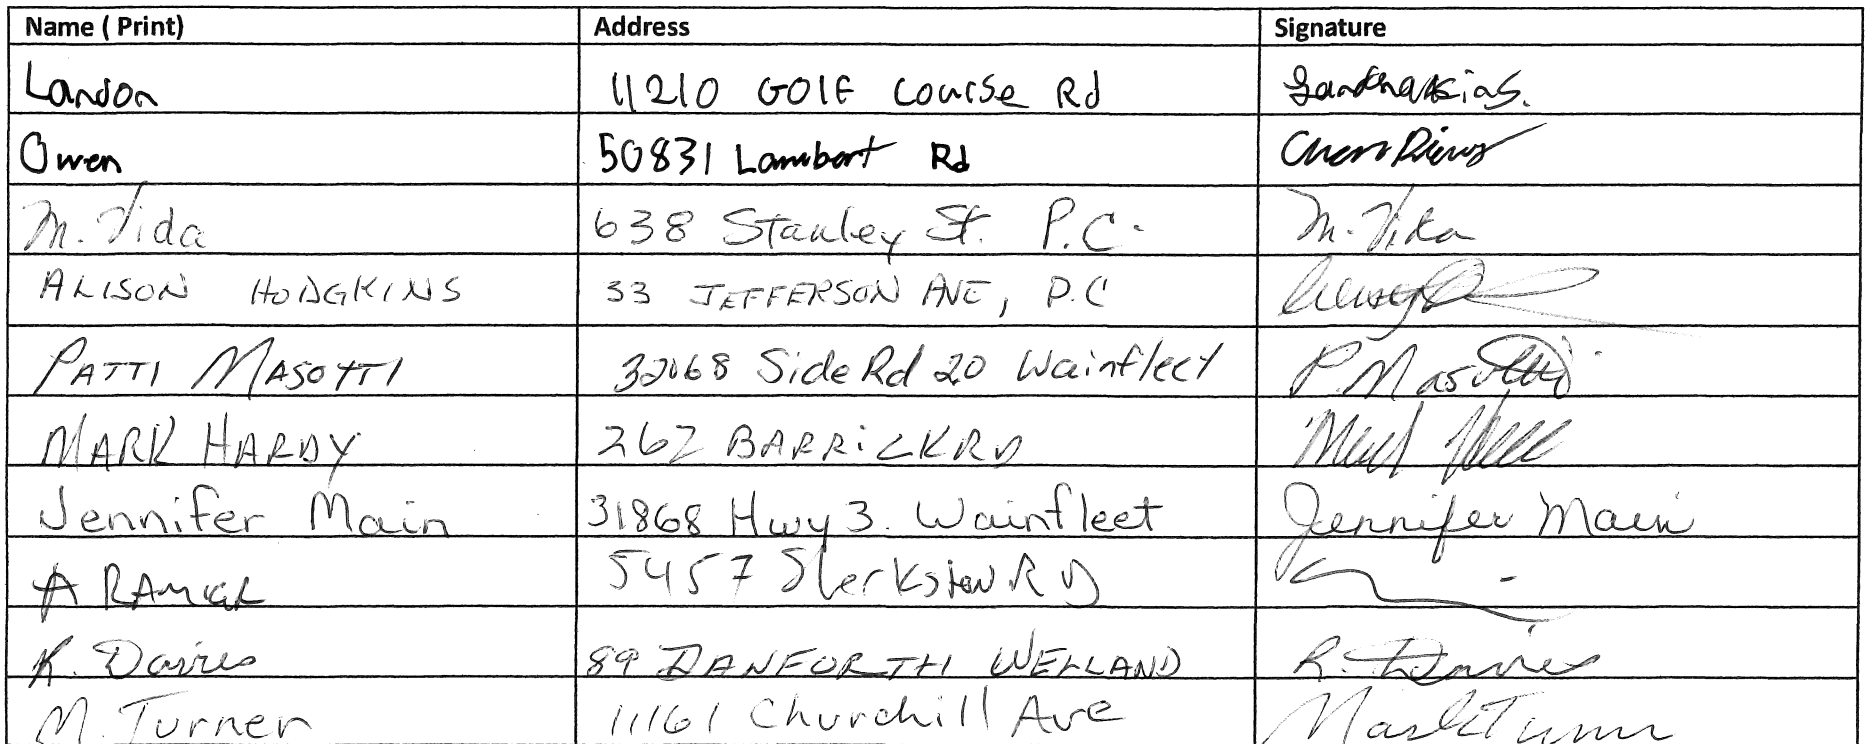 Name ( Print) Address Signature
Landon 11210 GOlF Course Rd
Owen 50831 Lambert Rd Owen
M. Vida 638 Stanley St. P.C. M. Vida
ALISON HODGKINS 33 JEFFERSON AVE, P.C
PATTI MASOTTI 32068 Side Rd 20 Wainfleet P. Masotti
MARK HARDY 262 BARRiCK RD
Jennifer Main 31868 Hwy 3. Wainfleet Jennifer Main
A 5457 SherkstonRD
K. Davies 89 DANFORTH WELLAND K. Davies
M. Turner 11161 Churchill Ave Mark Turner